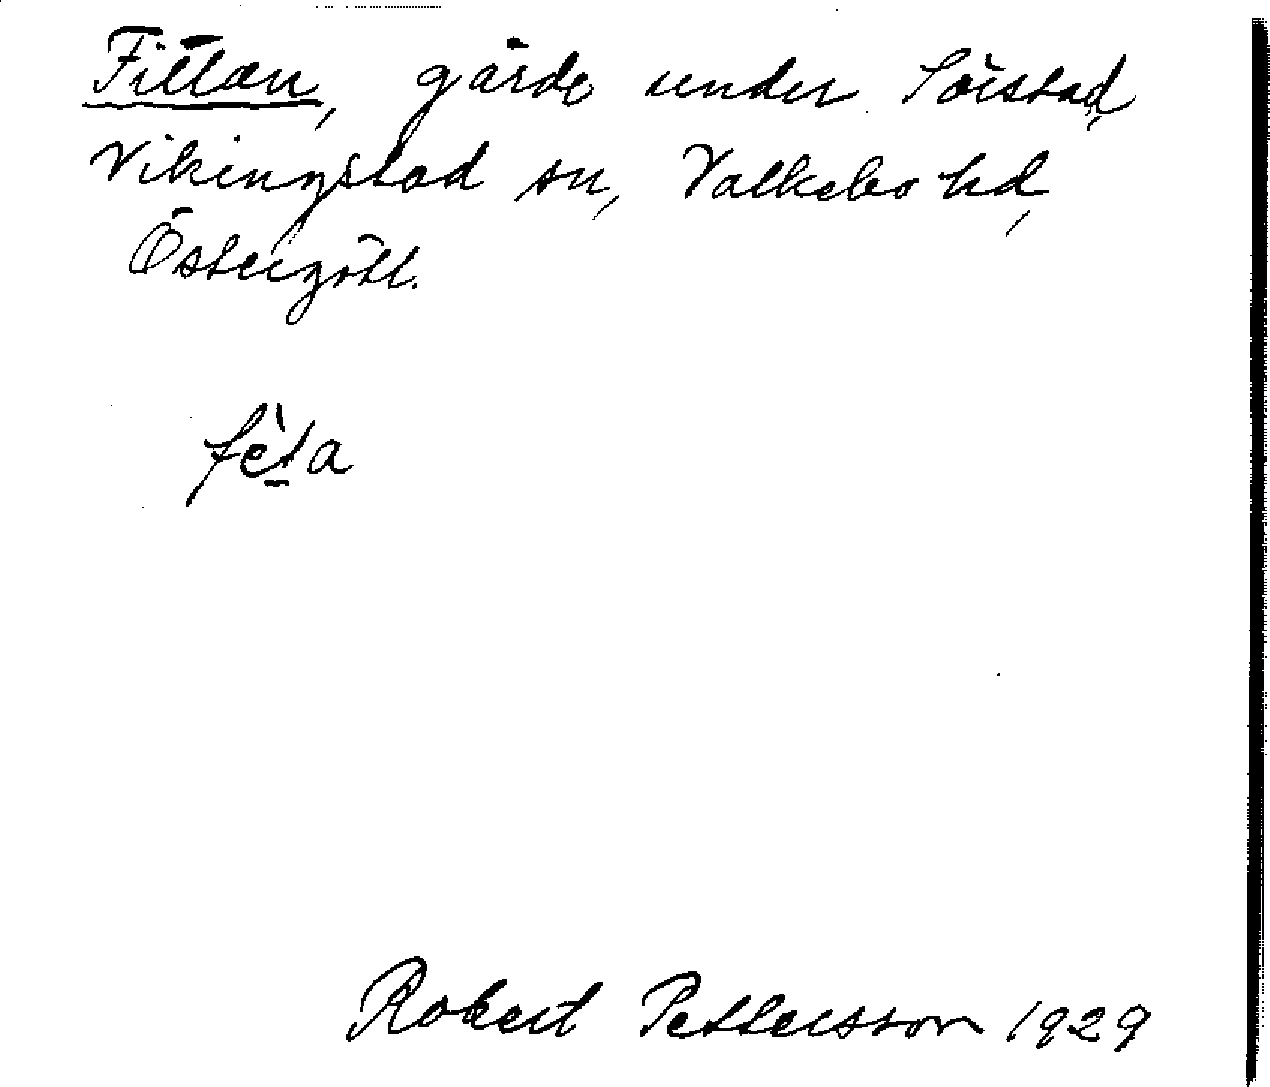 Fittan, gärde under Sörstad,
Vikingstad sn, Valkebo hd,
Östergötl.
fèta
Robert Pettersson 1929